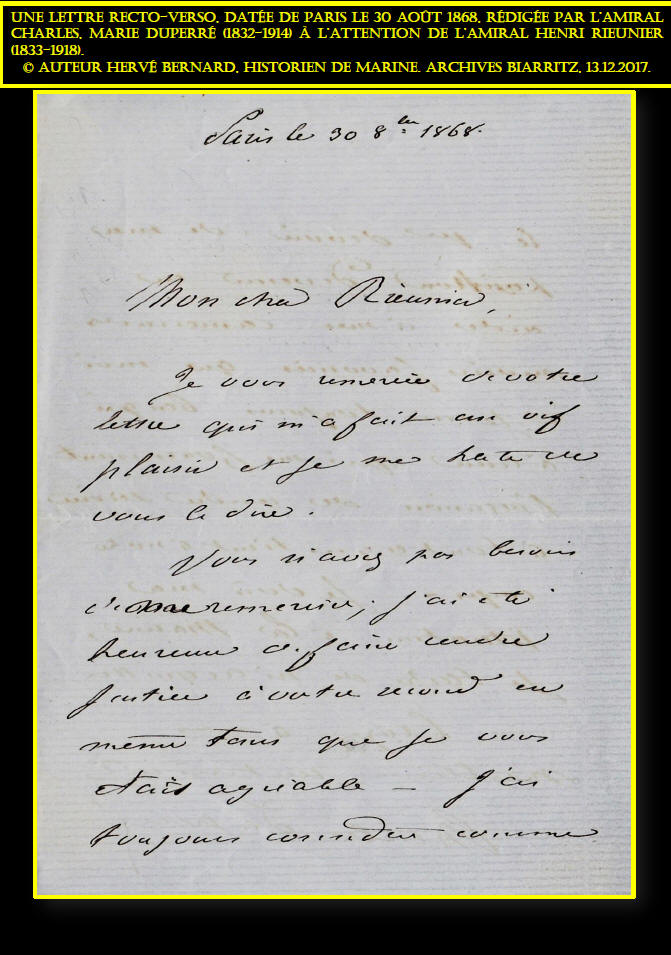 UNE LETTRE RECTO-VERSO, DATÉE DE PARIS LE 30 AOÛT 1868, RÉDIGÉE PAR L'AMIRAL
CHARLES, MARIE DUPERRÉ (1832-1914) À L'ATTENTION DE L'AMIRAL HENRI RIEUNIER
(1833-1918).
© AUTEUR HERVÉ BERNARD, HISTORIEN DE MARINE. ARCHIVES BIARRITZ, 13.12.2017.
Paris le 30 8bre 1868.
Mon cher Rieunier,
Je vous remercie de votre
lettre qui m'a fait un vif
plaisir et je me hate de
vous le dire.
Vous n'avez pas besoin
de me remercier, j'ai été
heureux de faire rendre
justice à votre en
même tems que je vous
étais agréable — J'ai
toujours considéré comme